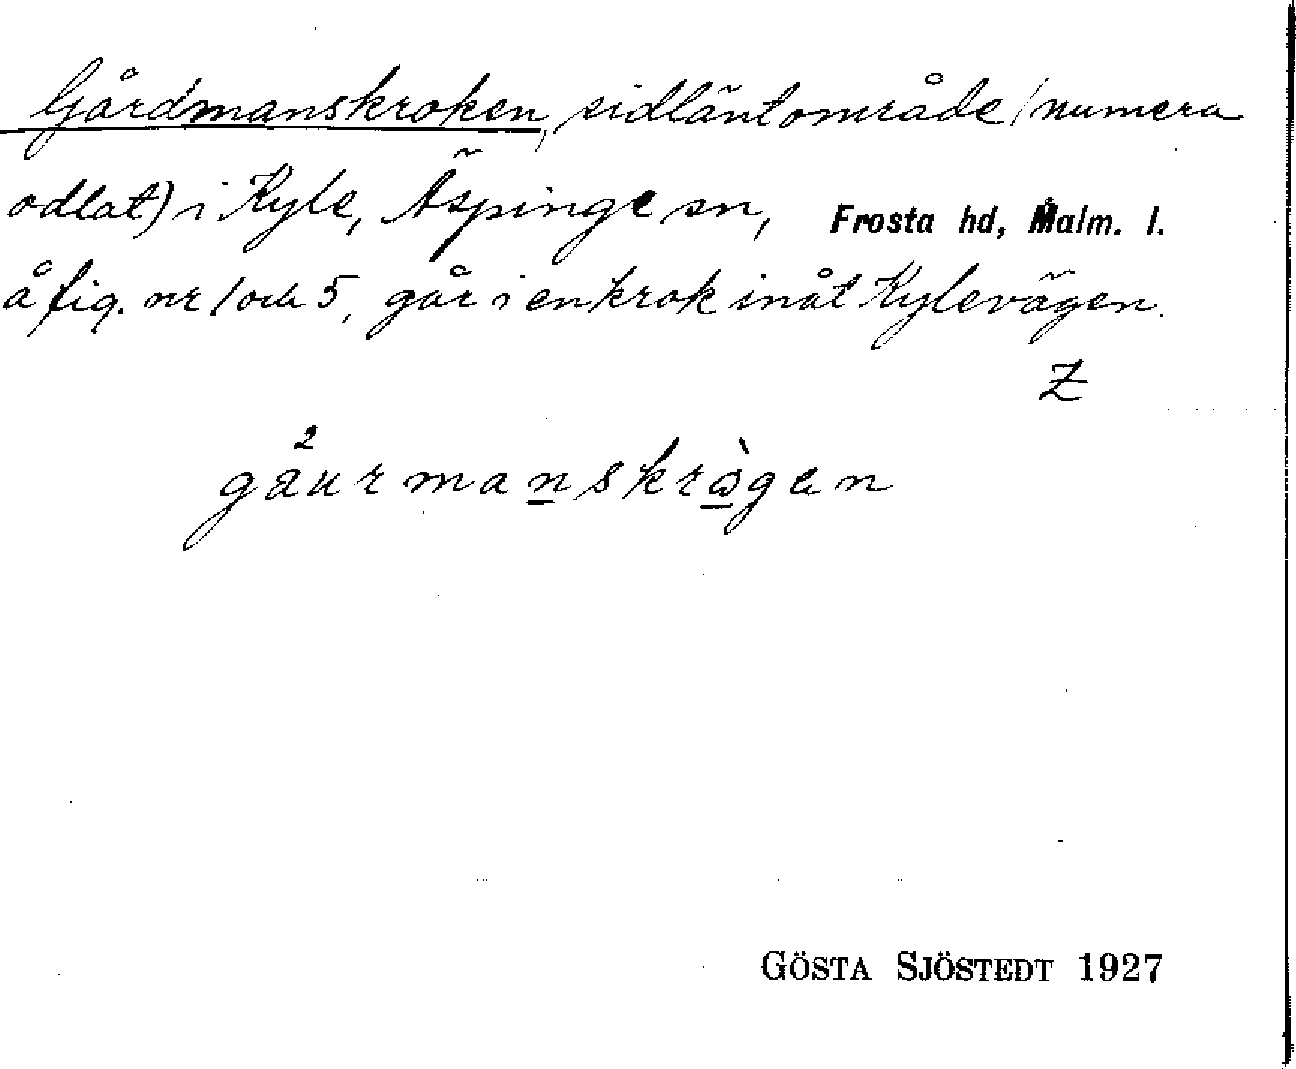 Gårdmanskroken, sidläntområde (numera
odlat) i Kyle, Äspinge sn, Frosta hd, Malm. l.
å fig. nr 1 och 5, går i en krok inåt Kylevägen.
Z
gå²urmanskrògen
GÖSTA SJÖSTEDT 1927